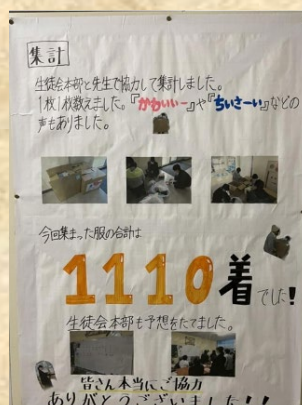 集計
生徒会本部と先生で協力して集計しました。
1枚1枚数えました。『かわいいー』や『ちいさーい』などの
声もありました。
今回集まった服の合計は
1110着でした!
生徒会本部も予想をたてました。
皆さん本当にご協力
ありがとうございました!!